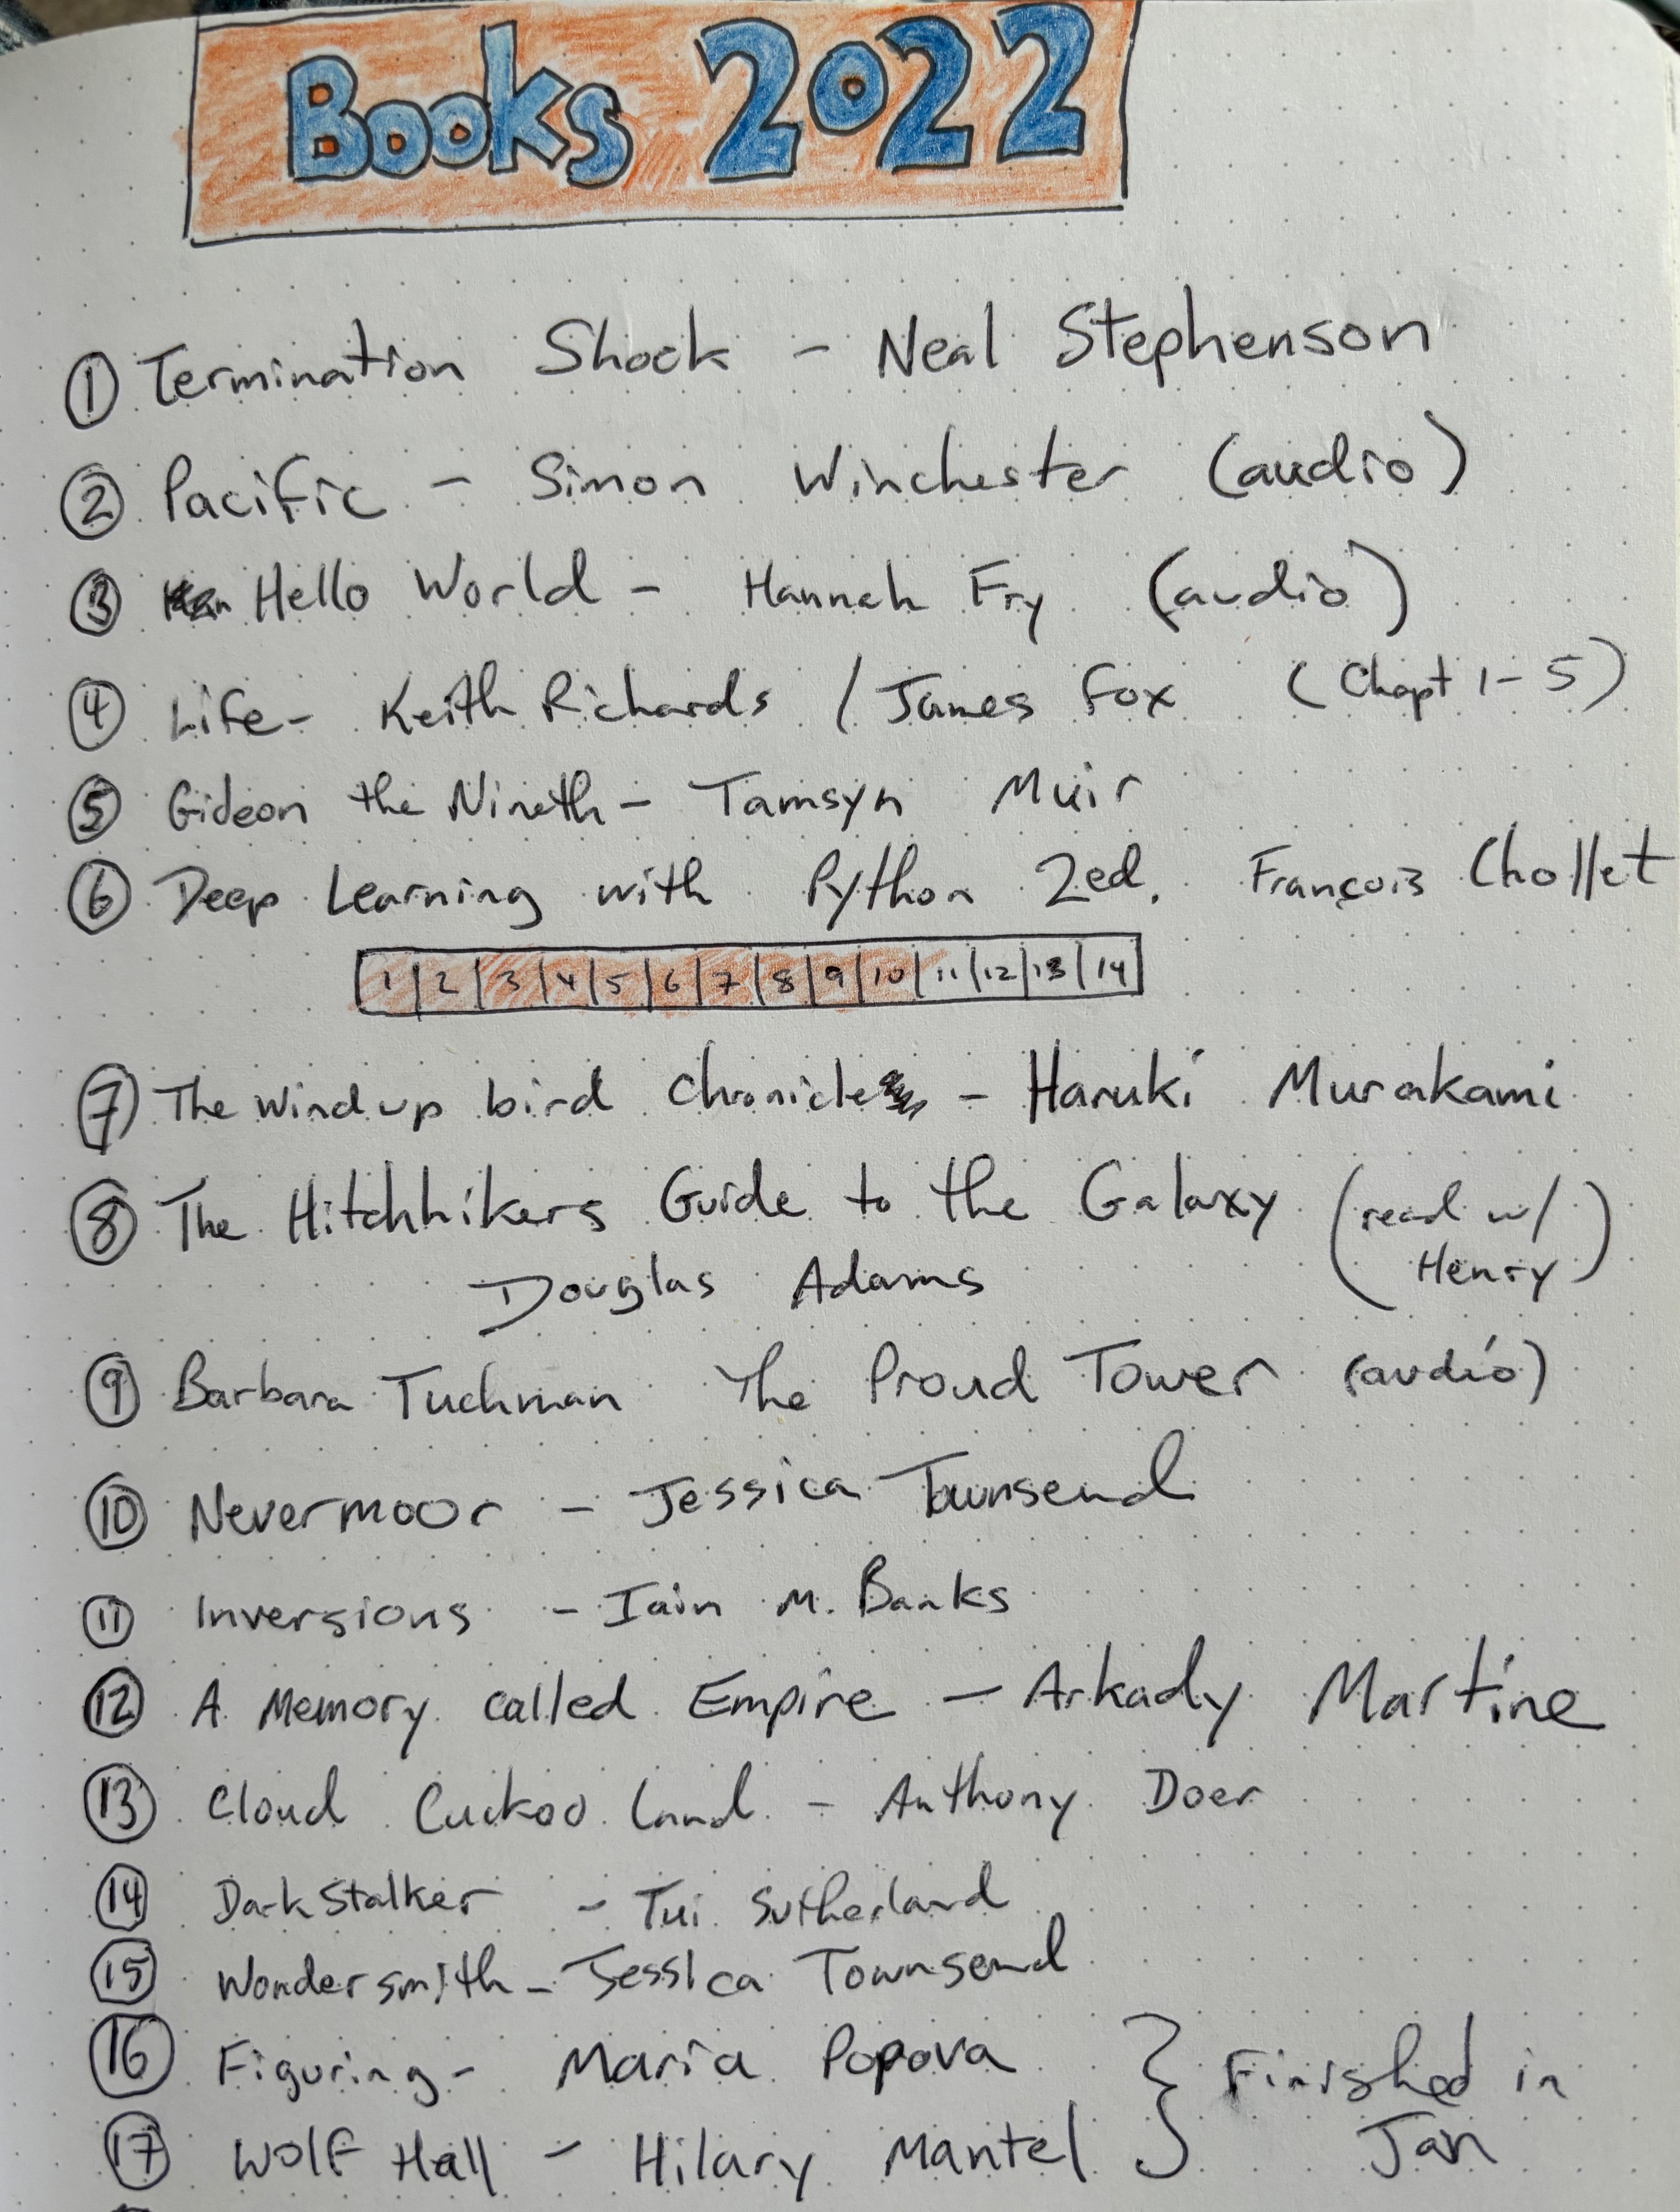 Books 2022
① Termination Shock - Neal Stephenson
② Pacific - Simon Winchester (audio)
③ Hello World - Hannah Fry (audio)
④ Life - Keith Richards / James Fox (Chapt 1-5)
⑤ Gideon the Nineth - Tamsyn Muir
⑥ Deep Learning with Python 2ed. François Chollet
1 | 2 | 3 | 4 | 5 | 6 | 7 | 8 | 9 | 10 | 11 | 12 | 13 | 14
⑦ The Wind up bird Chronicle - Haruki Murakami
⑧ The Hitchhikers Guide to the Galaxy (read w/
Douglas Adams Henry)
⑨ Barbara Tuchman The Proud Tower (audio)
⑩ Nevermoor - Jessica Townsend
⑪ Inversions - Iain M. Banks
⑫ A Memory called Empire - Arkady Martine
⑬ Cloud Cuckoo Land - Anthony Doer
⑭ Dark Stalker - Tui Sutherland
⑮ Wondersmith - Jessica Townsend
⑯ Figuring - Maria Popova } Finished in
⑰ Wolf Hall - Hilary Mantel Jan